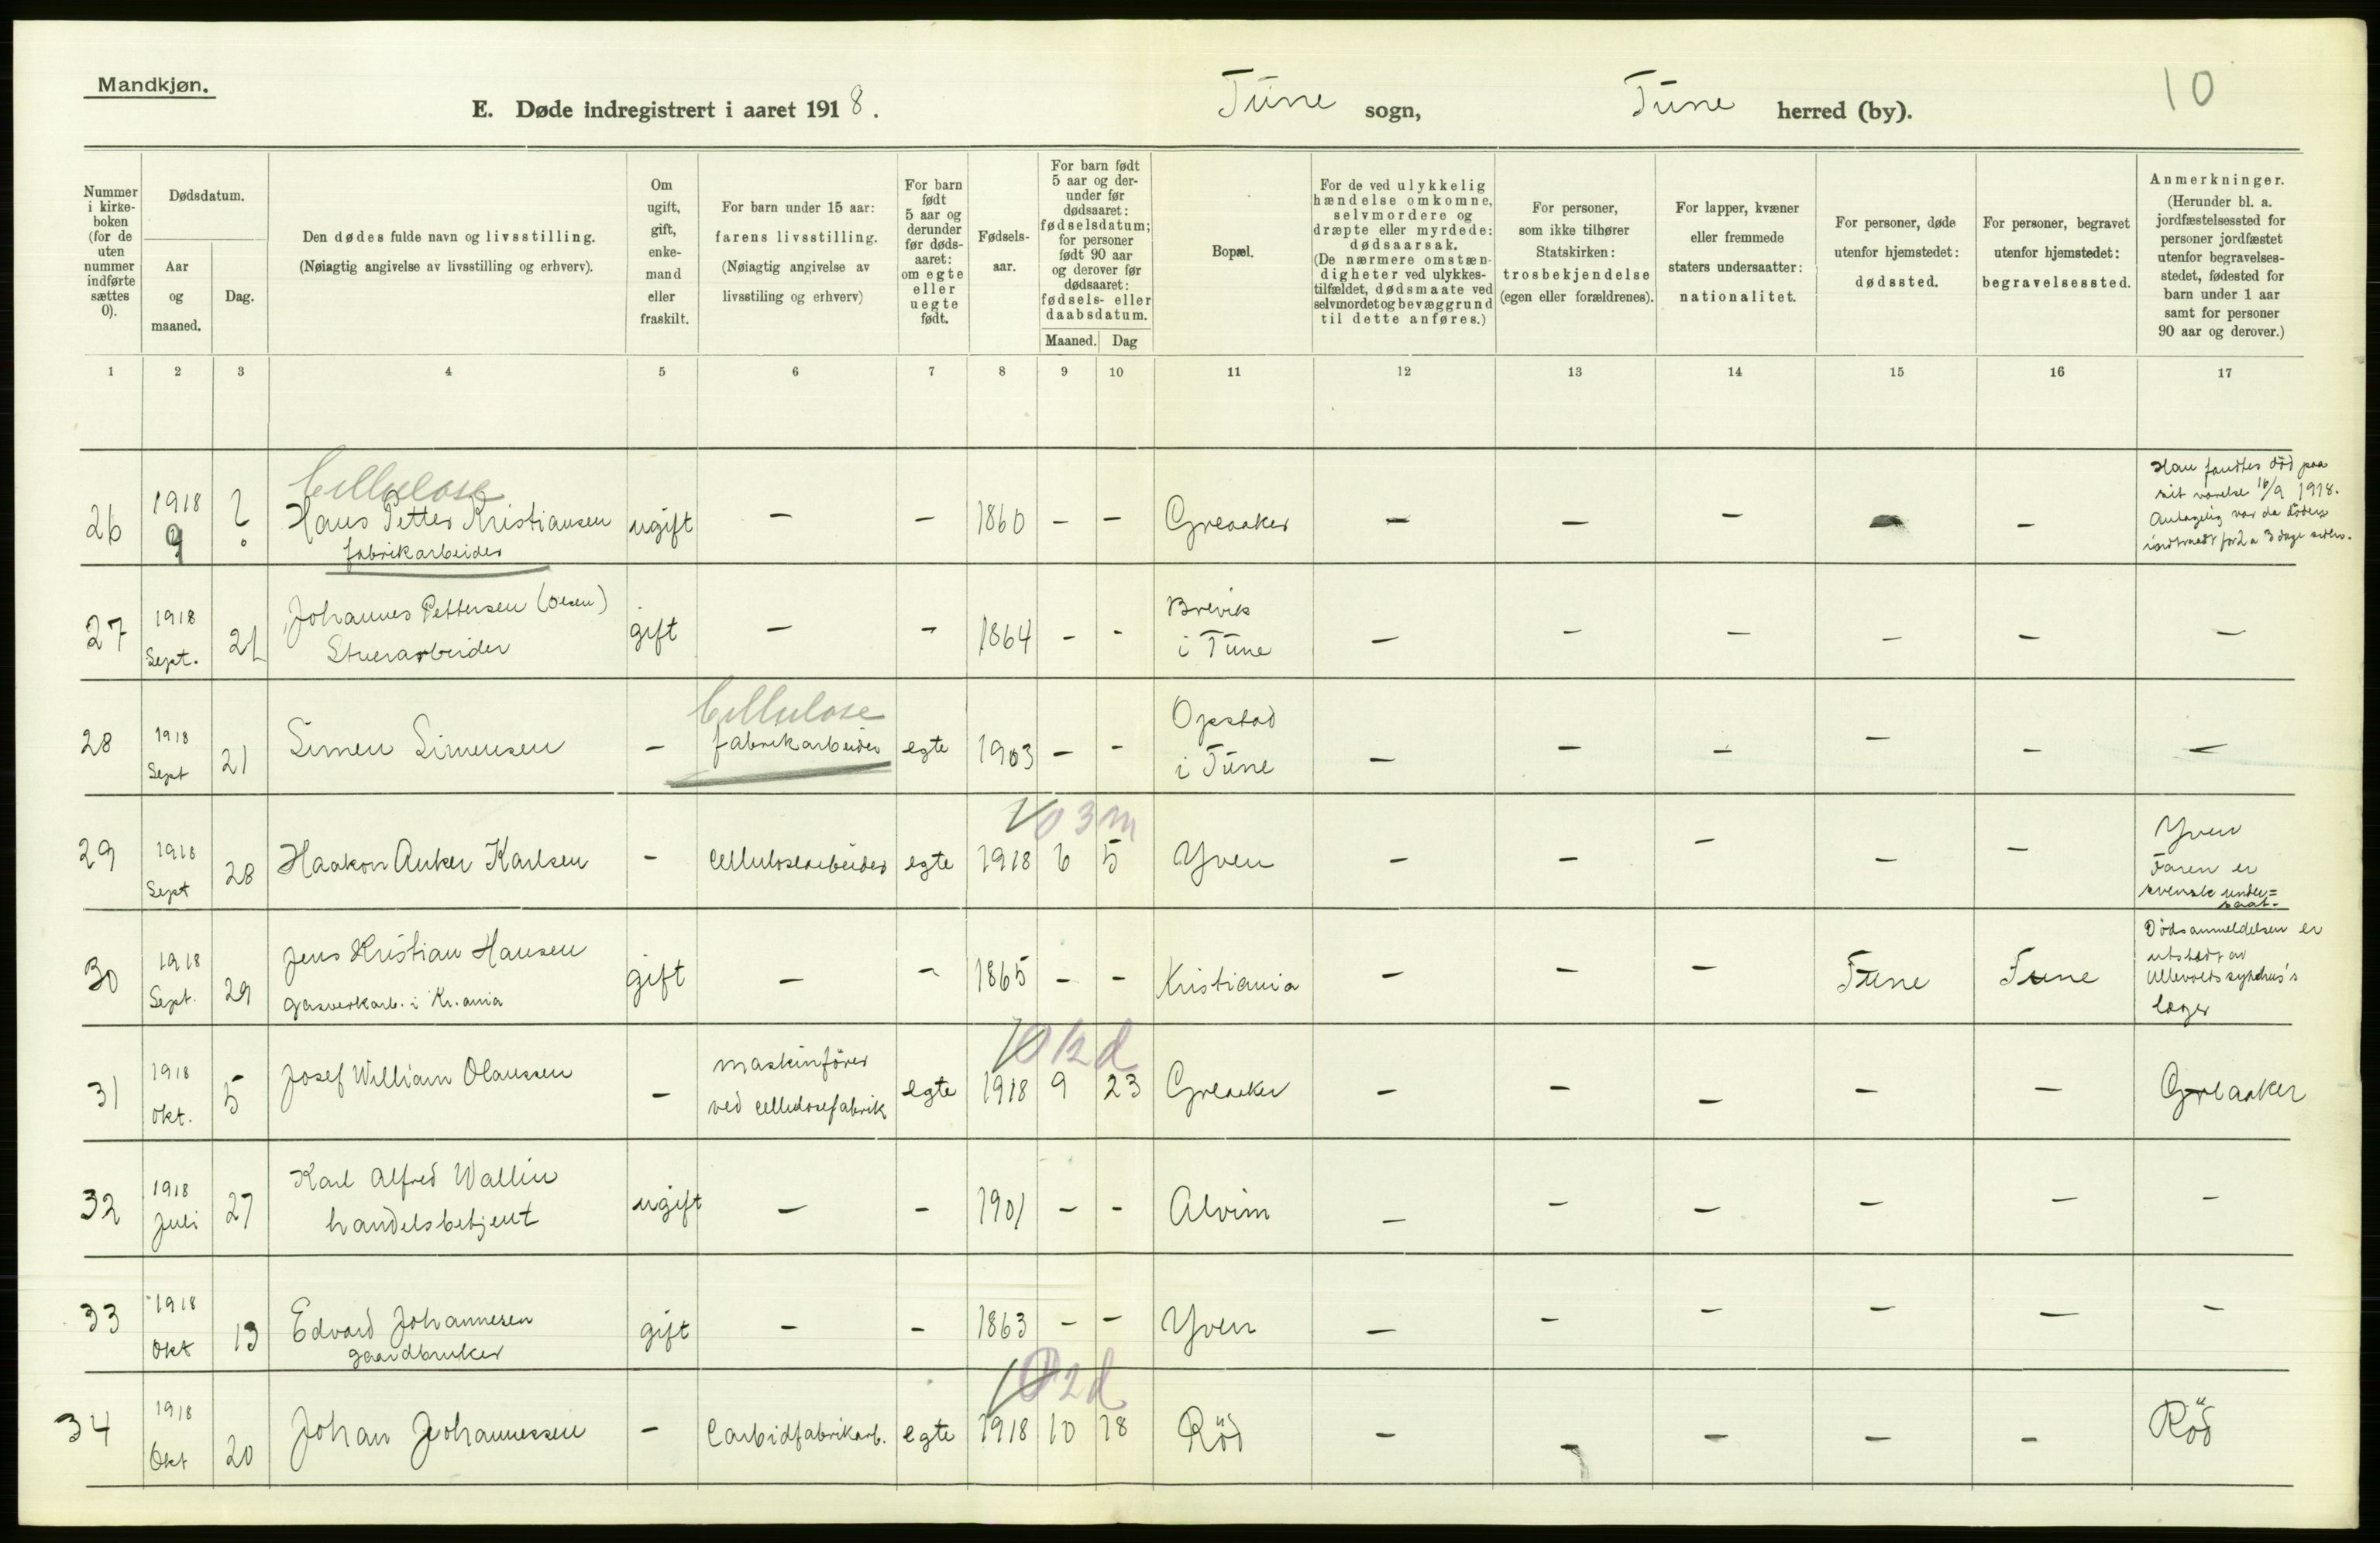 Mandkjøn.
E. Døde indregistrert i aaret 1918. Tune sogn, Tune herred (by). 10
Nummer i kirkeboken (for de uten nummer indførte sættes 0).
Dødsdatum.
Aar og maaned.
Dag.
Den dødes fulde navn og livsstilling.
(Nøiagtig angivelse av livsstilling og erhverv).
Om ugift, gift, enkemand eller fraskilt.
For barn under 15 aar: farens livsstilling.
(Nøiagtig angivelse av livsstiling og erhverv)
For barn født 5 aar og derunder før dødsaaret: om egte eller uegte født.
Fødselsaar.
For barn født 5 aar og derunder før dødsaaret: fødselsdatum; for personer født 90 aar og derover før dødsaaret: fødsels- eller daabsdatum.
Maaned. Dag
Bopæl.
For de ved ulykkelig hændelse omkomne, selvmordere og dræpte eller myrdede: dødsaarsak.
(De nærmere omstændigheter ved ulykkestilfældet, dødsmaate ved selvmordet og bevæggrund til dette anføres.)
For personer, som ikke tilhører Statskirken: trosbekjendelse (egen eller forældrenes).
For lapper, kvæner eller fremmede staters undersaatter: nationalitet.
For personer, døde utenfor hjemstedet: dødssted.
For personer, begravet utenfor hjemstedet: begravelsessted.
Anmerkninger.
(Herunder bl. a. jordfæstelsessted for personer jordfæstet utenfor begravelsesstedet, fødested for barn under 1 aar samt for personer 90 aar og derover.)
1 2 3 4 5 6 7 8 9 10 11 12 13 14 15 16 17
26 1918 9 ? Cellulose Hans Petter Kristiansen fabrikarbeider ugift - - 1860 - - Greaaker - - - - - Han fandtes død paa sit værelse 16/9 1918. Antagelig var da døden indtraadt for 2 a 3 dage siden.
27 1918 Sept. 21 Johannes Pettersen (Olsen) Stuerarbeider gift - - 1864 - - Brevik i Tune - - - - - -
28 1918 Sept 21 Simen Simensen - Cellulose fabrikarbeider egte 1903 - - Opstad i Tune - - - - - -
29 1918 Sept 28 Haakon Anker Karlsen - Cellulosearbeider egte 1918 6 5 0 3 m Yven - - - - - Yven Faren er svensk undersaat.
30 1918 Sept. 29 Jens Kristian Hansen Gasverkarb. i Kr.ania gift - - 1865 - - Kristiania - - - Tune Tune Dødsanmeldelsen er utstedt av Ullevolds sykehus's læger
31 1918 Okt. 5 Josef William Olaussen - maskinfører ved cellulosefabrik egte 1918 9 23 0 12 d Greaaker - - - - - Greaaker
32 1918 Juli 27 Karl Alfred Wallin handelsbetjent ugift - - 1901 - - Alvim - - - - - -
33 1918 Okt 13 Edvard Johannesen gaardbruker gift - - 1863 - - Yven - - - - - -
34 1918 Okt 20 Johan Johannessen - Carbidfabrikarb. egte 1918 10 18 0 2 d Röd - - - - - Röd